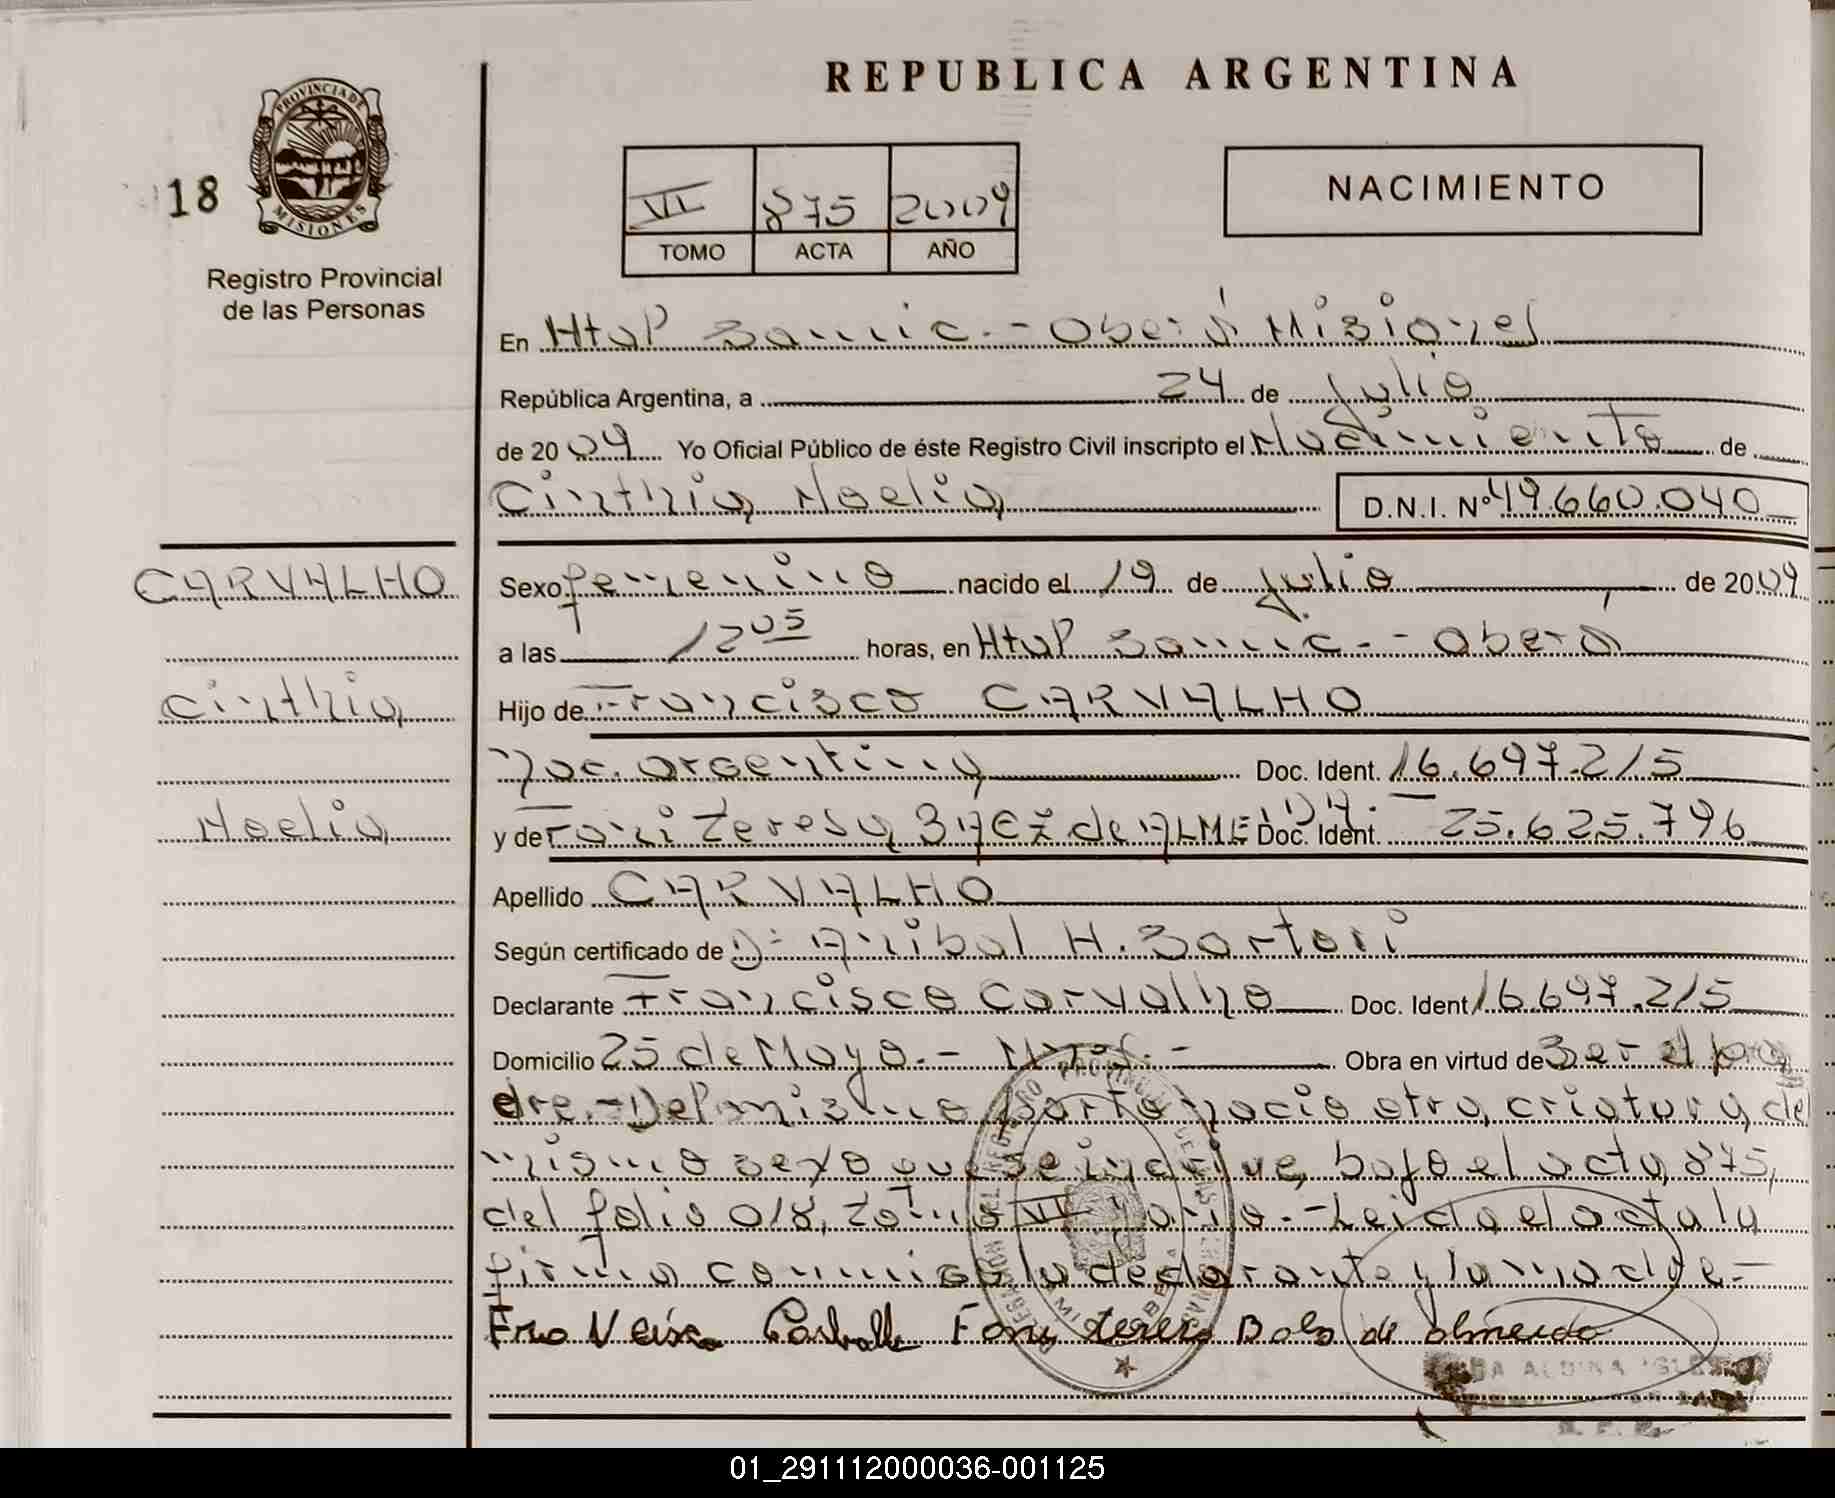 REPUBLICA ARGENTINA
PROVINCIA DE
MISIONES
18
Registro Provincial
de las Personas
VI 875 2009
TOMO ACTA AÑO
NACIMIENTO
En HtalP Samic.- Oberá Misiones
República Argentina, a 24 de julio
de 2009 Yo Oficial Público de éste Registro Civil inscripto el Nacimiento de
Cinthia Noelia D.N.I. Nº 49.660.040
CARVALHO
Sexo femenino nacido el 19 de julio de 2009
a las 12 05 horas, en HtalP Samic.- Oberá
Cinthia
Hijo de Francisco CARVALHO
Nac. argentina Doc. Ident. 16.697.215
Noelia
y de Fani Teresa BAEZ de ALMEIDA.- Doc. Ident. 25.625.796
Apellido CARVALHO
Según certificado de Dr Anibal H. Sartori
Declarante Francisco Carvalho Doc. Ident 16.697.215
Domicilio 25 de Mayo.- Mnes.- Obra en virtud de Ser el pa
dre.- Del mismo parto nacio otra criatura del
mismo sexo que se inscrive bajo el acta 875,
del folio 018, Tomo VI Leida el acta la
firma conmigo la declarante y la madre.-
Fani teresa de almeida
ALDINA
01_291112000036-001125